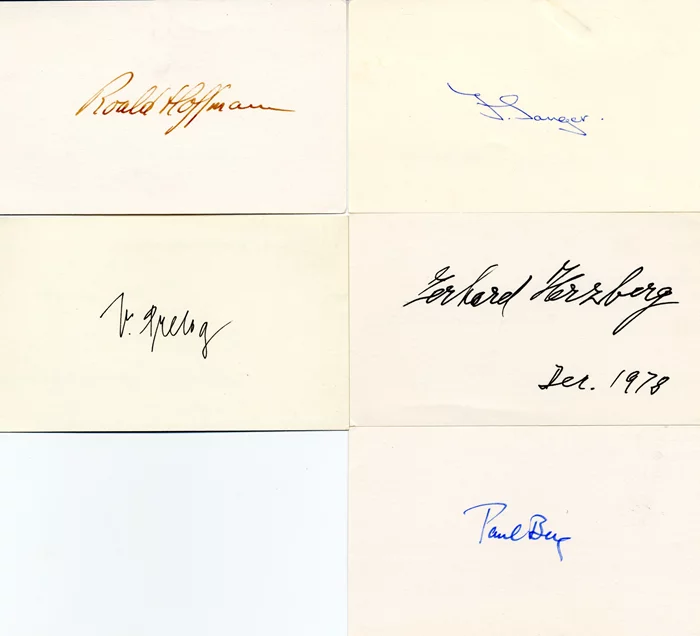 Roald Hoffmann
F. Sanger.
V. Prelog
Gerhard Herzberg
Dec. 1978
Paul Berg